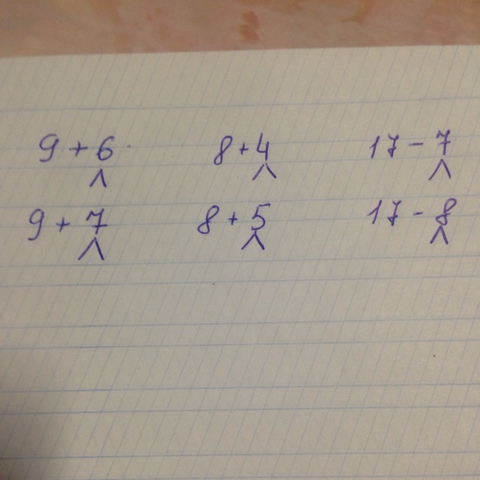 9 + 6 8 + 4 17 - 7
9 + 7 8 + 5 17 - 8